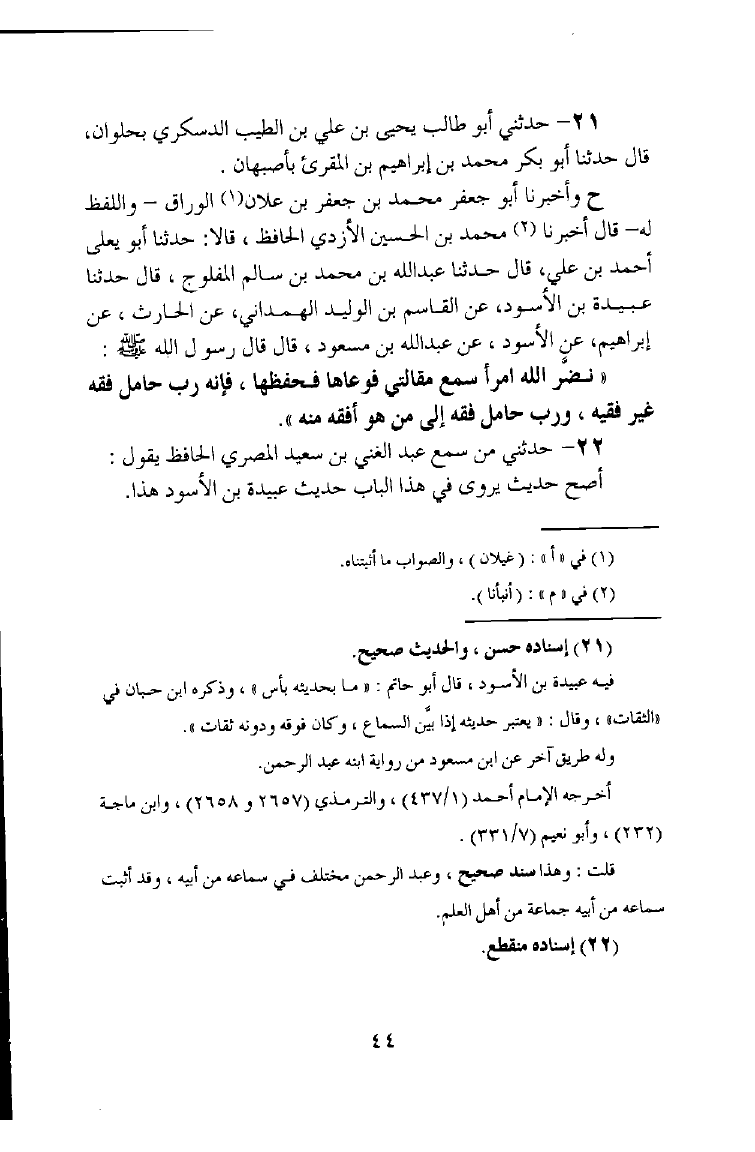 ٢١– حدثني أبو طالب يحيى بن علي بن الطيب الدسكري بحلوان،
قال حدثنا أبو بكر محمد بن إبراهيم بن المقرئ بأصبهان .
ح وأخبرنا أبو جعفر محمد بن جعفر بن علان(١) الوراق – واللفظ
له– قال أخبرنا (٢) محمد بن الحسين الأزدي الحافظ ، قالا: حدثنا أبو يعلى
أحمد بن علي، قال حدثنا عبدالله بن محمد بن سالم المفلوج ، قال حدثنا
عبيدة بن الأسود، عن القاسم بن الوليد الهمداني، عن الحارث ، عن
إبراهيم، عن الأسود ، عن عبدالله بن مسعود ، قال قال رسول الله ﷺ :
« نضَّر الله امرأ سمع مقالتي فوعاها فحفظها ، فإنه رب حامل فقه
غير فقيه ، ورب حامل فقه إلى من هو أفقه منه ».
٢٢– حدثني من سمع عبد الغني بن سعيد المصري الحافظ يقول :
أصح حديث يروى في هذا الباب حديث عبيدة بن الأسود هذا.
(١) في «أ» : (غيلان) ، والصواب ما أثبتناه.
(٢) في « م » : (أنبأنا).
(٢١) إسناده حسن ، والحديث صحيح.
فيه عبيدة بن الأسود ، قال أبو حاتم : « ما بحديثه بأس » ، وذكره ابن حبان في
«الثقات» ، وقال : « يعتبر حديثه إذا بيَّن السماع ، وكان فوقه ودونه ثقات ».
وله طريق آخر عن ابن مسعود من رواية ابنه عبد الرحمن.
أخرجه الإمام أحمد (٤٣٧/١) ، والترمذي (٢٦٥٧ و ٢٦٥٨) ، وابن ماجة
(٢٣٢) ، وأبو نعيم (٣٣١/٧) .
قلت : وهذا سند صحيح ، وعبد الرحمن مختلف في سماعه من أبيه ، وقد أثبت
سماعه من أبيه جماعة من أهل العلم.
(٢٢) إسناده منقطع.
٤٤